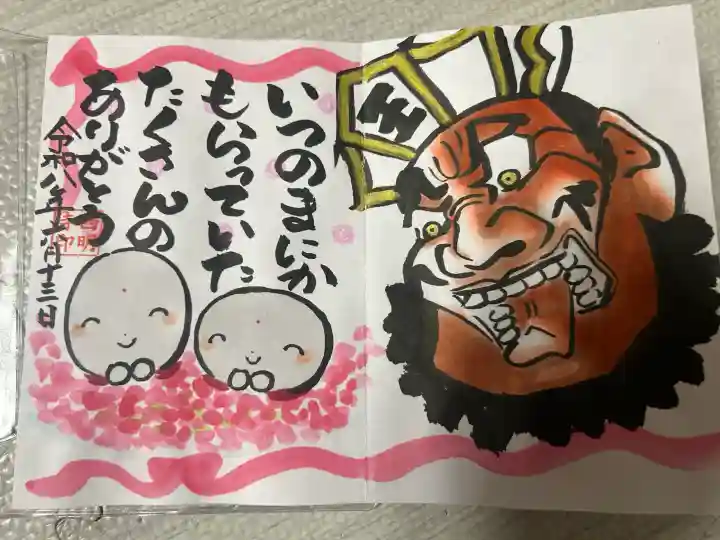 いつのまにか
もらっていた
たくさんの
ありがとう
令和八年六月十三日
王